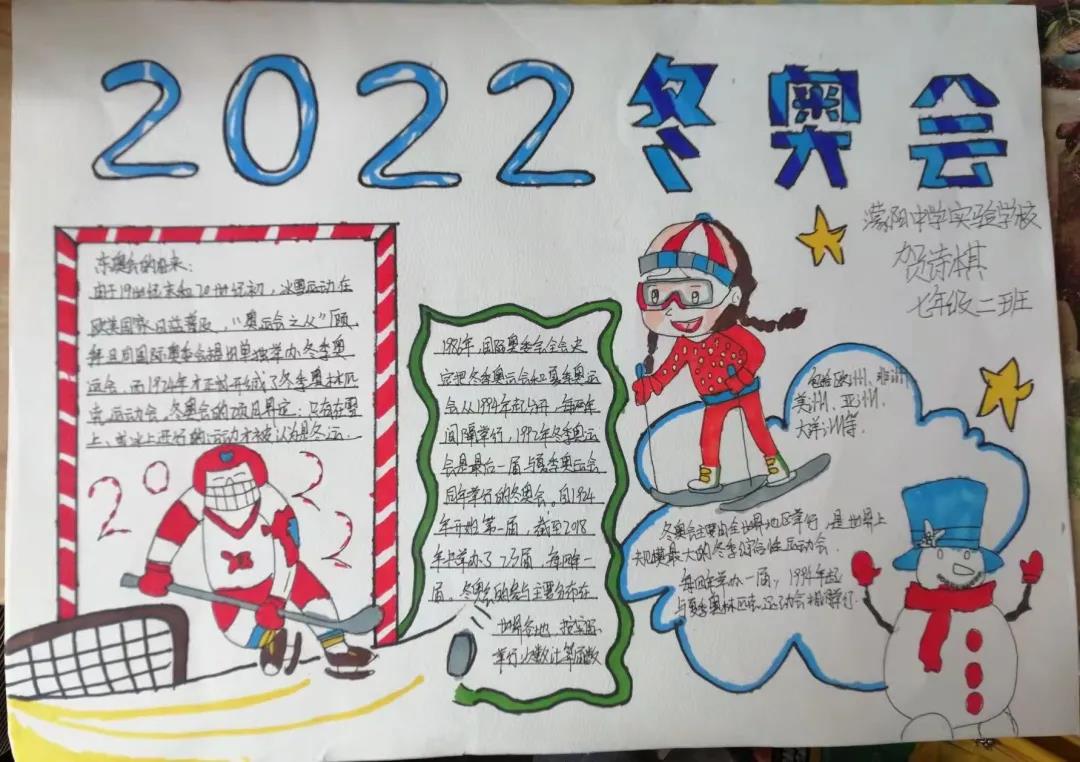 2022冬奥会
濛阳中学实验学校
贺诗棋
七年级二班
冬奥会的由来:
由于19世纪末和20世纪初,冰雪运动在
欧美国家日益普及,"奥运会之父"顾
拜旦向国际奥委会提出单独举办冬季奥
运会,而1924年才正式开始了冬季奥林匹
克运动会。冬奥会的项目界定:只有在雪
上、或冰上进行的运动才被认为是冬运.
2022
1986年,国际奥委会全会决
定把冬季奥运会和夏季奥运
会从1994年起分开,每两年
间隔举行,1992年冬季奥运
会是最后一届与夏季奥运会
同年举行的冬奥会。自1924
年开始第一届,截至2018
年共举办了23届,每四年一
届。冬奥会的参与主要分布在
世界各地,按实际
举行次数计算届数
包括欧洲、非洲
美洲、亚洲、
大洋洲等.
冬奥会主要由全世界地区举行,是世界上
规模最大的冬季综合性运动会.
每四年举办一届,1994年起
与夏季奥林匹克运动会相间举行.